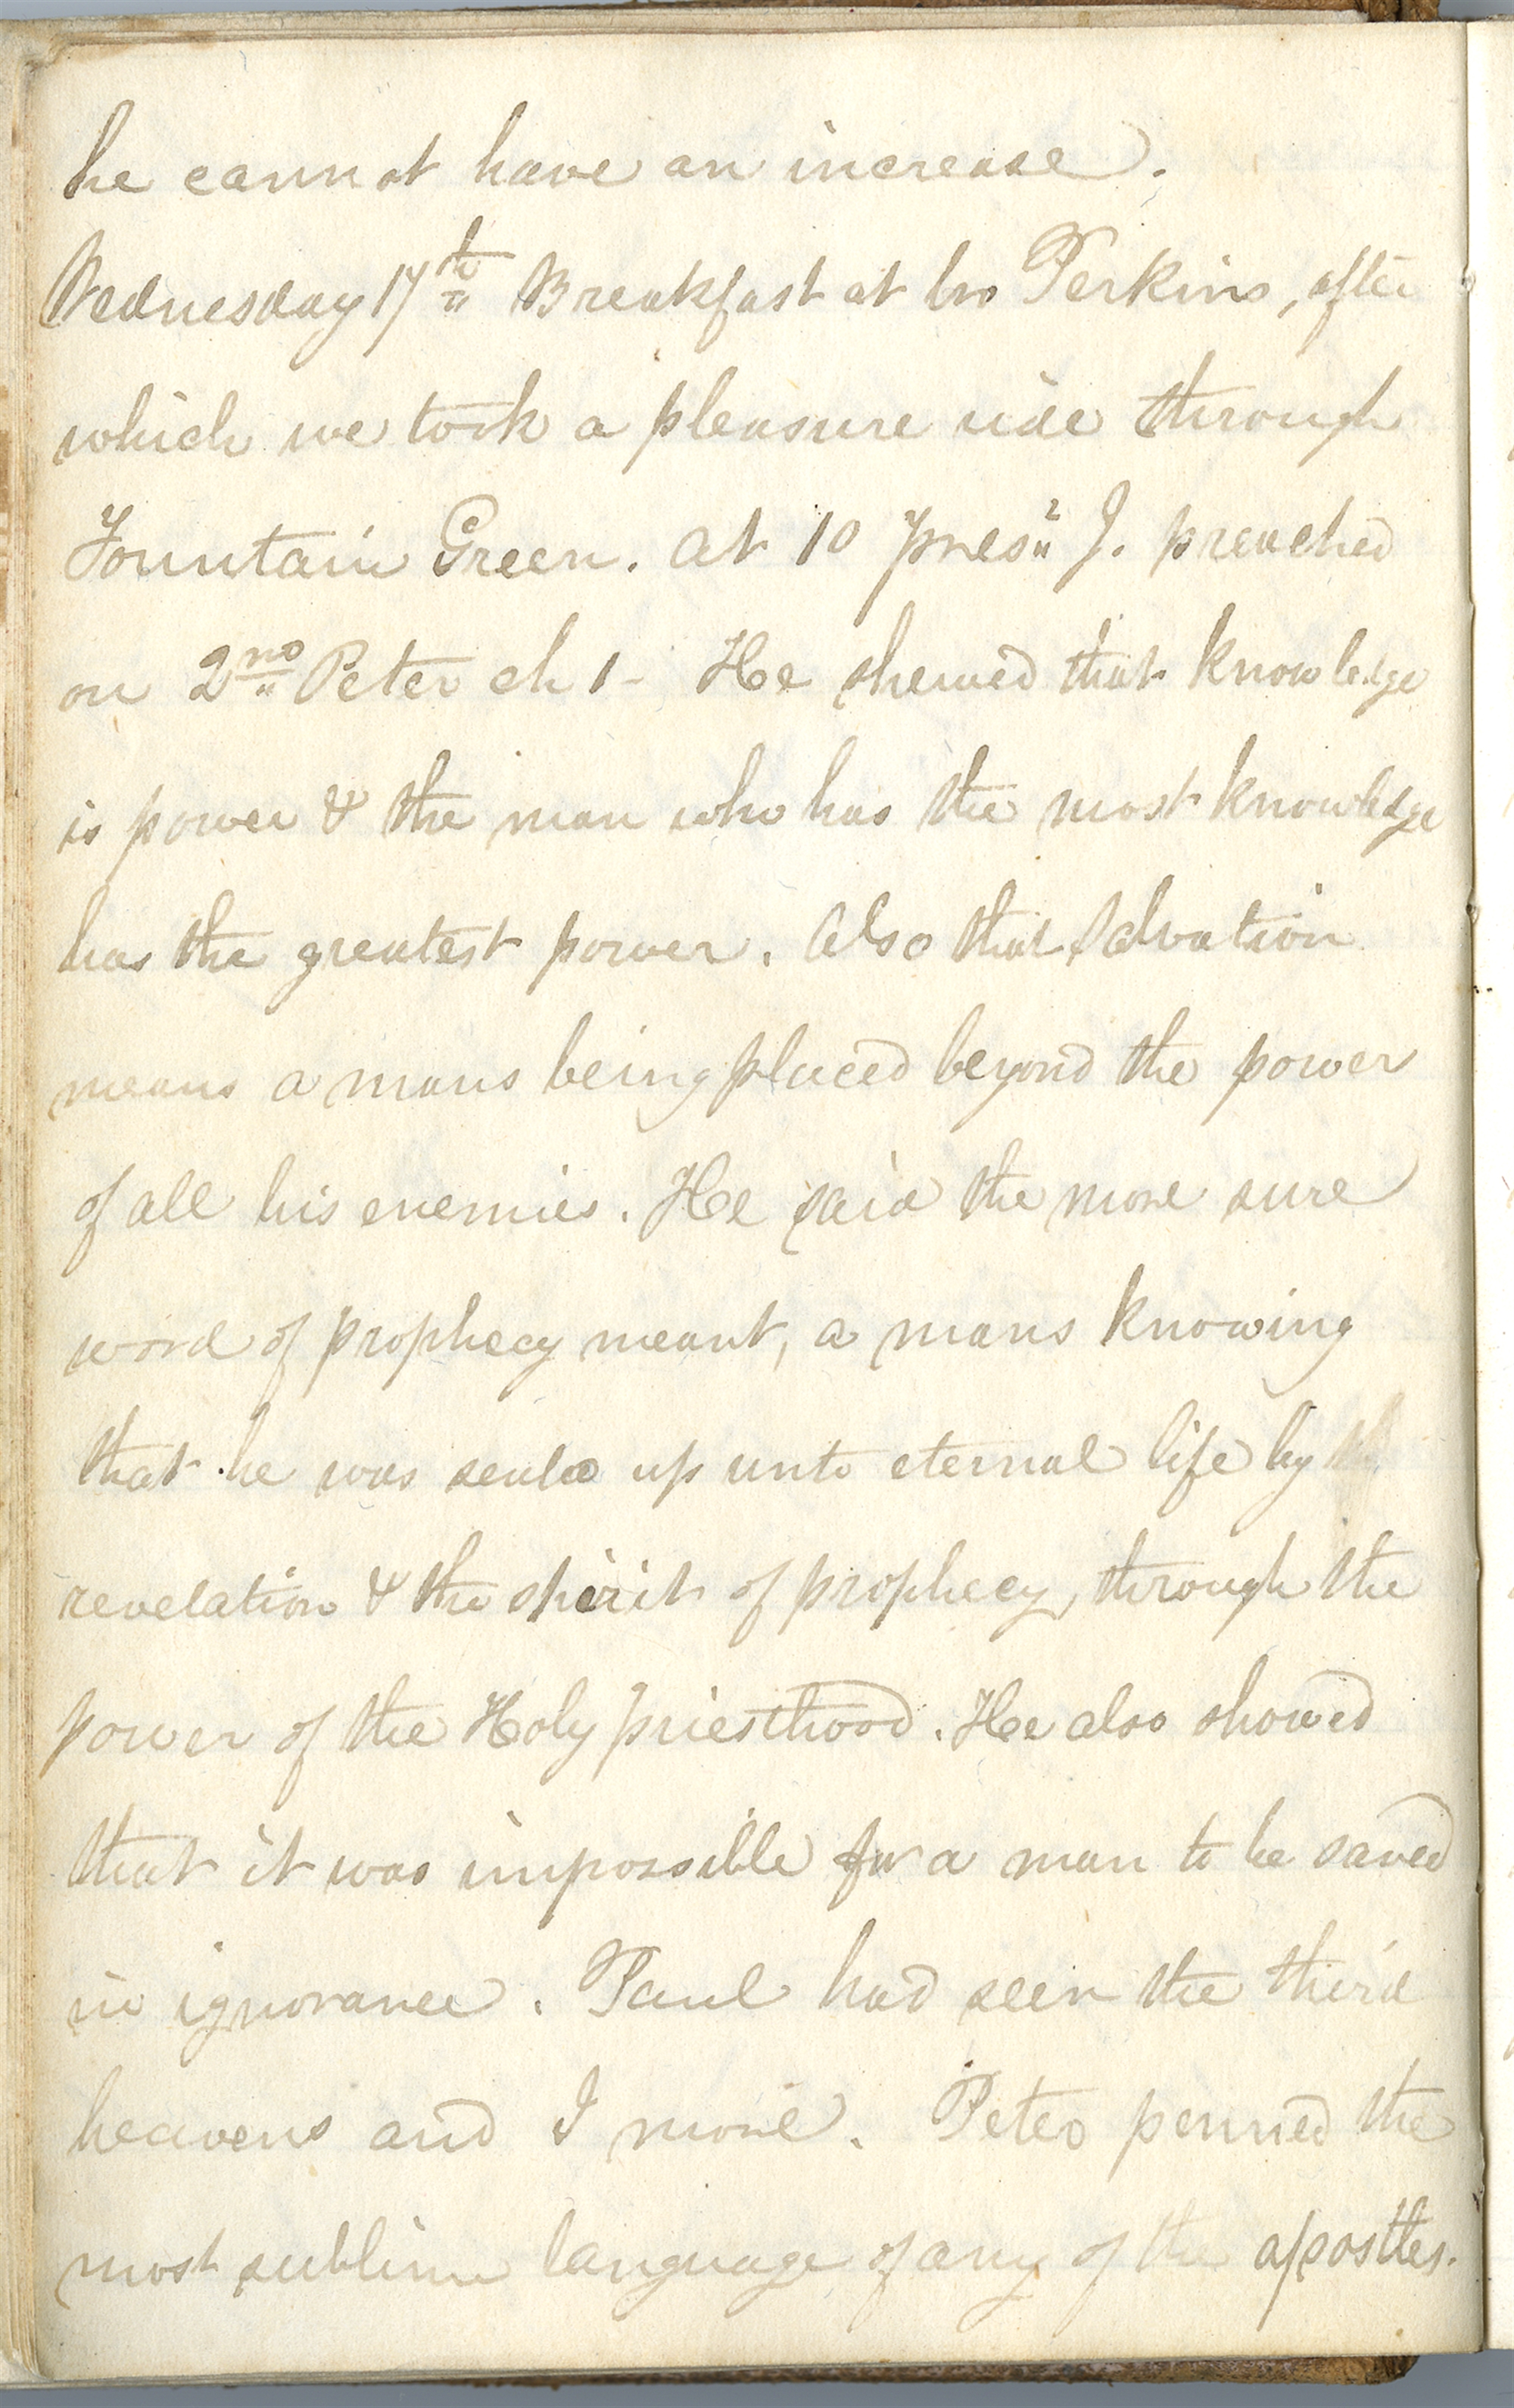 he cannot have an increase.
Wednesday 17th Breakfast at bro Perkins, after
which we took a pleasure ride through
Fountain Green. At 10 Prest J. preached
on 2nd Peter ch 1- He shewed that knowledge
is power & the man who has the most knowledge
has the greatest power. Also that salvation
means a mans being placed beyond the power
of all his enemies. He said the more sure
word of prophecy meant, a mans knowing
that he was seald up unto eternal life by
revelation & the spirit of prophecy, through the
power of the Holy priesthood. He also showed
that it was impossible for a man to be saved
in ignorance. Paul had seen the third
heavens and I more. Peter penned the
most sublime language of any of the apostles.